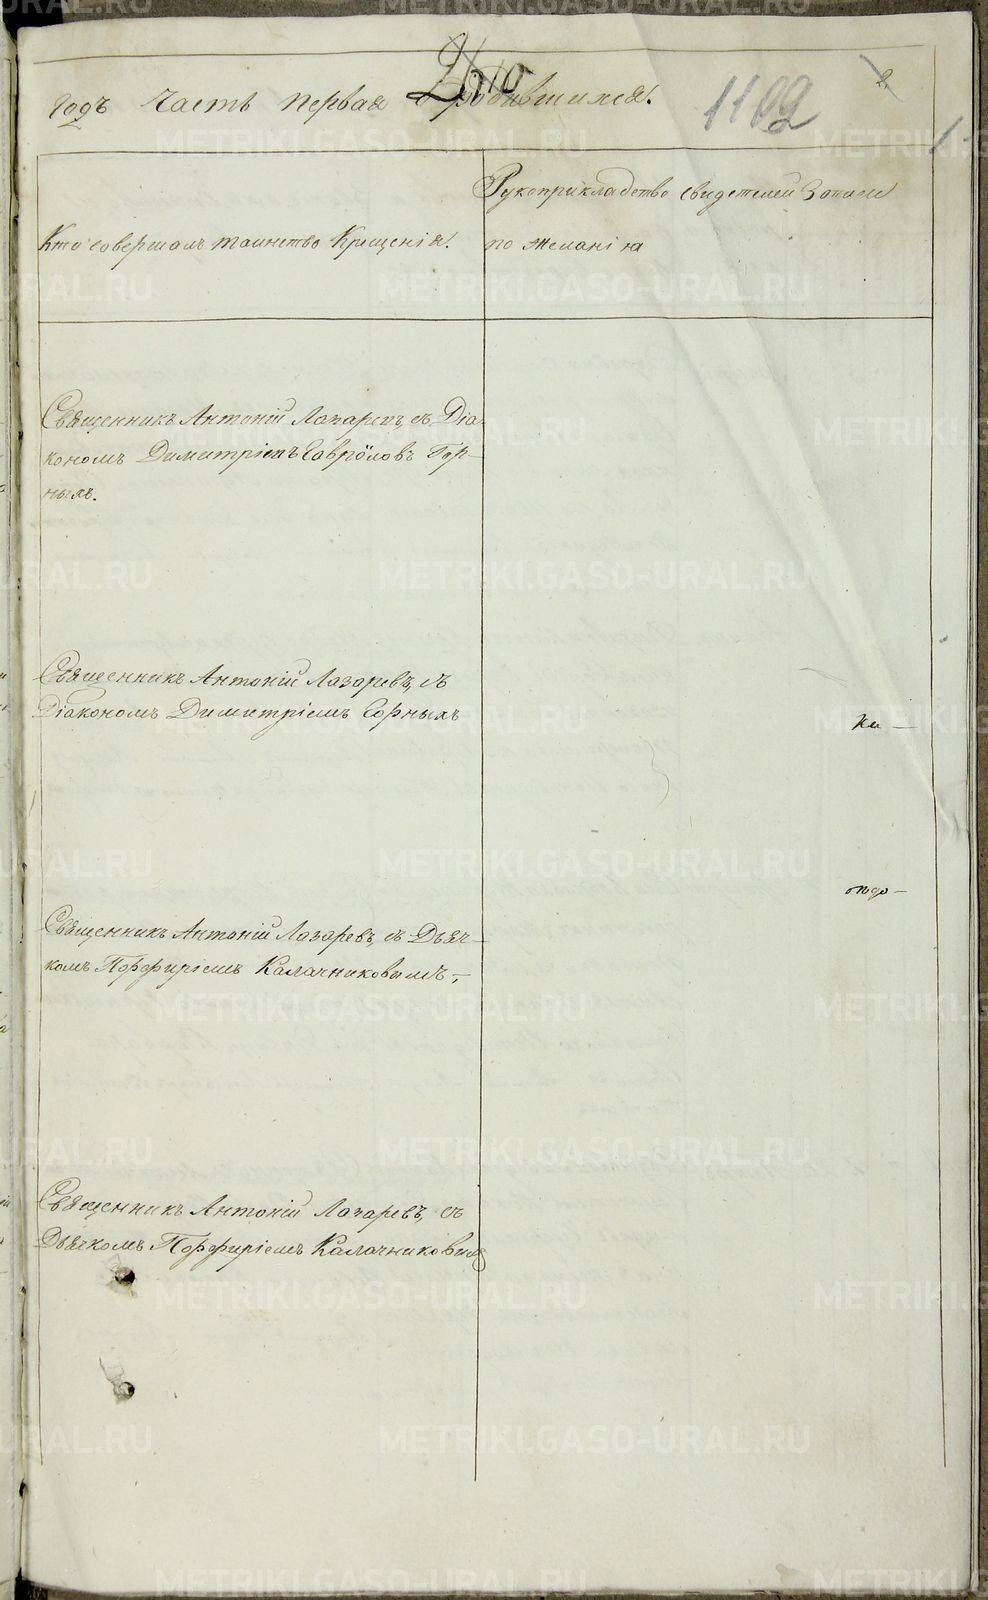 Годъ Часть первая о родившихся.
1102
2
Кто совершалъ таинство Крещенія.
Рукоприкладство свидетелей записи
по желанію
Священникъ Антоній Лазаревъ, съ Діа-
кономъ Димитріемъ Гор-
ныхъ.
Священникъ Антоній Лазаревъ, съ
Діакономъ Димитріемъ Горныхъ
ки —
опдо —
Священникъ Антоній Лазаревъ, съ Дьяч-
комъ Порфиріемъ Калачниковымъ,
Священникъ Антоній Лазаревъ, съ
Дьячкомъ Порфиріемъ Калачниковым
METRIKI.GASO-URAL.RU